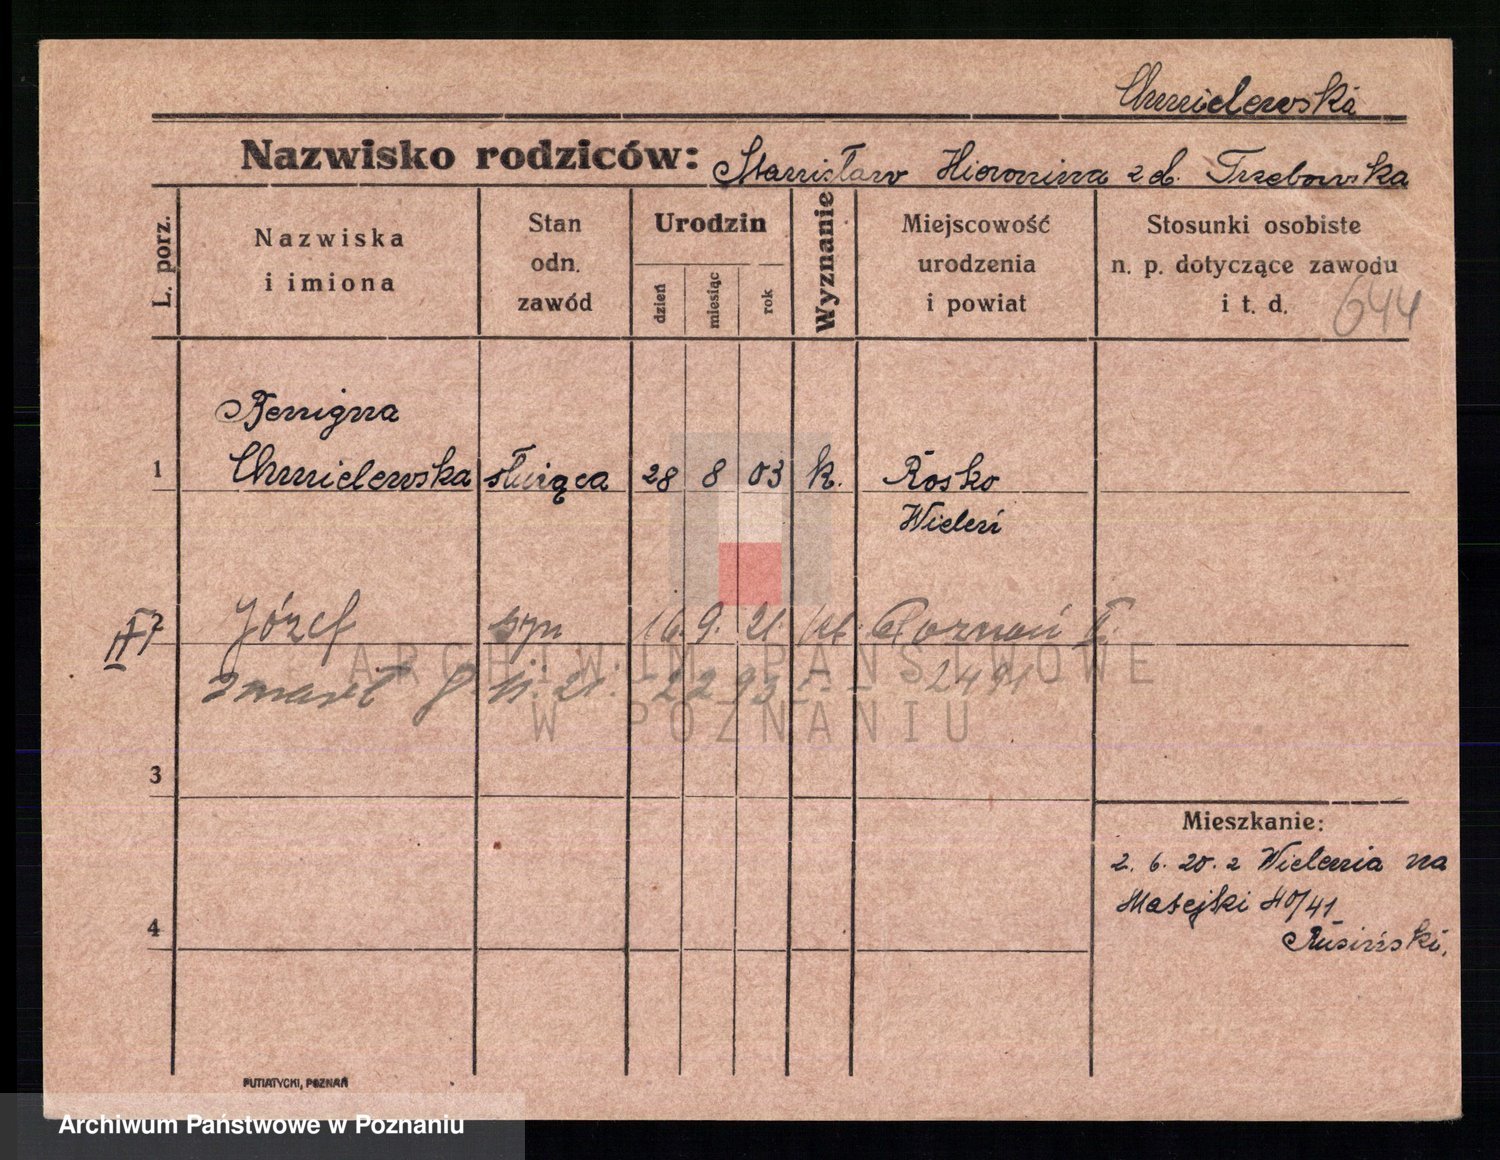 Chmielewska
Nazwisko rodziców: Stanisław Hieronima z d. Trzebowska
L. porz.
Nazwiska
i imiona
Stan
odn.
zawód
Urodzin
dzień
miesiąc
rok
Wyznanie
Miejscowość
urodzenia
i powiat
Stosunki osobiste
n. p. dotyczące zawodu
i t. d.
644
Benigna
1 Chmielewska służąca 28 8 03 k. Rosko
Wieleń
Józef syn 16. 9. 21 kat. Poznań
zmarł 21.
ARCHIWUM PAŃSTWOWE
W POZNANIU
3
Mieszkanie:
2. 6. 20. z Wielenia na
Matejki 40/41
Rusiński.
4
PUTIATYCKI, POZNAŃ
Archiwum Państwowe w Poznaniu